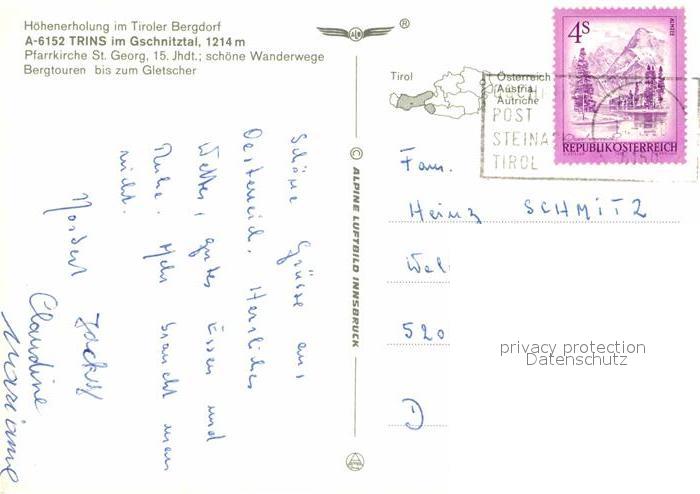 Höhenerholung im Tiroler Bergdorf
A-6152 TRINS im Gschnitztal, 1214 m
Pfarrkirche St. Georg, 15. Jhdt.; schöne Wanderwege
Bergtouren bis zum Gletscher
®
Tirol
Österreich
Austria
Autriche
4S
ALMSEE
REPUBLIK ÖSTERREICH
POST
STEINA
TIROL
© ALPINE LUFTBILD INNSBRUCK
Schöne Grüsse aus
Oesterreich. Herrliches
Wetter, gutes Essen und
Ruhe. Mehr braucht man
nicht.
Norbert
Claudine
Marianne
Fam.
Heinz SCHMITZ
Wel
520
D
privacy protection
Datenschutz